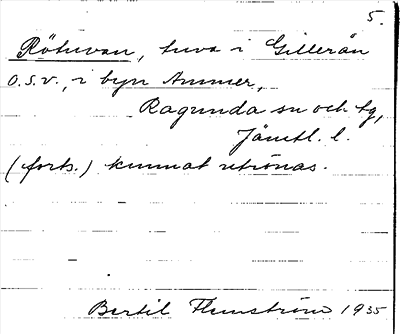 5.
Rötuvan, tuva i Gillerån
o.s.v., i byn Ammer,
Ragunda sn och tg,
Jämtl. l.
(forts.) kunnat utrönas.
Bertil Flemström 1935